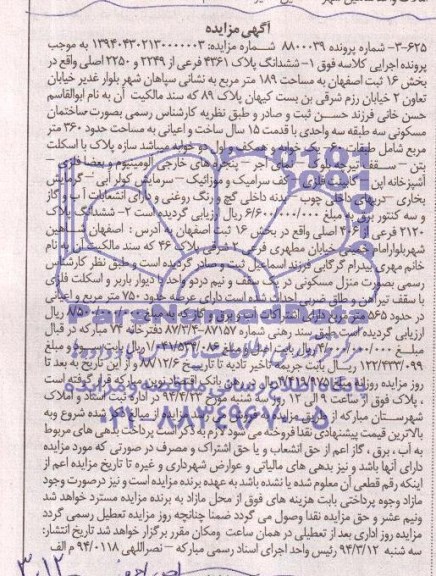 آگهی مزایده
۳-۶۲۵- شماره پرونده ۸۸۰۰۰۳۹ شماره مزایده: ۱۳۹۴۰۴۳۰۲۱۳۰۰۰۰۰۰۳ به موجب
پرونده اجرایی کلاسه فوق ۱- ششدانگ پلاک ۴۳۶۱ فرعی از ۲۲۴۹ و ۲۲۵۰ اصلی واقع در
بخش ۱۶ ثبت اصفهان به مساحت ۱۸۹ متر مربع به نشانی سپاهان شهر بلوار غدیر خیابان
تعاون ۲ خیابان رزم شرقی بن بست کیهان پلاک ۸۹ که سند مالکیت آن به نام ابوالقاسم
حسن خانی فرزند حسن ثبت و صادر و طبق نظریه کارشناس رسمی بصورت ساختمان
مسکونی سه طبقه سه واحدی با قدمت ۱۵ سال ساخت و اعیانی به مساحت حدود ۳۶۰ متر
مربع شامل طبقات همکف و اول و دوم میباشد سازه پلاک با اسکلت
بتن – سقف تیرچه بلوک – پنجره های خارجی آلومینیوم و
آشپزخانه اپن کابینت فلزی – کف سرامیک و موزائیک – سرمایش کولر آبی – گرمایش
بخاری – دربهای داخلی چوب – بدنه داخلی گچ و رنگ روغنی و دارای انشعابات آب و گاز
و سه کنتور برق به مبلغ ۶/۶۰۰/۰۰۰/۰۰۰ ریال ارزیابی گردیده است ۲- ششدانگ پلاک
۲۱۲۰ فرعی از ۴۰۶ اصلی واقع در بخش ۱۶ ثبت اصفهان به آدرس: اصفهان شاهین
شهر بلوار امام خمینی خیابان مطهری فرعی ۲ شرقی پلاک ۴۶ که سند مالکیت آن به نام
خانم مهری بیدرام گرگابی فرزند اسماعیل ثبت و صادر گردیده است و طبق نظر کارشناس
رسمی بصورت منزل مسکونی در سقف و نیم در دو واحد با دیوار باربر و اسکلت فلزی
با سقف تیرآهن و طاق ضربی احداث شده است دارای عرصه حدود ۷۵۰ متر مربع و اعیانی
در حدود ۵۶۵ متر مربع دارای اشتراکات آب و برق و گاز ریال
ارزیابی گردیده است طبق سند رهنی شماره ۸۷۱۵۷-۸۷/۳/۴ دفترخانه ۷۴ مبارکه در قبال
مبلغ ریال بابت اصل و مبلغ ۱/۰۴۷/۵۳۴/۰۸۶ ریال بابت سود و مبلغ
۱۲۲/۴۳۳/۰۹۹ ریال بابت جریمه تأخیر تادیه تا تاریخ ۸۸/۱۲/۶ و از این تاریخ به بعد تا
روز مزایده روزانه مبلغ ریال در رهن بانک اقتصاد نوین مبارکه قرار گرفته است
، پلاک فوق از ساعت ۹ الی ۱۲ روز سه شنبه مورخ ۹۴/۴/۲۳ در اداره ثبت اسناد و املاک
شهرستان مبارکه از طریق مزایده به فروش می رسد مزایده از مبالغ ذکر شده شروع و به
بالاترین قیمت پیشنهادی نقدا فروخته می شود لازم به ذکر است پرداخت بدهی های مربوط
به آب ، برق ، گاز اعم از حق انشعاب و یا حق اشتراک و مصرف در صورتی که مورد مزایده
دارای آنها باشد و نیز بدهی های مالیاتی و عوارض شهرداری و غیره تا تاریخ مزایده اعم از
اینکه رقم قطعی آن معلوم شده یا نشده باشد به عهده برنده مزایده است و نیز در صورت وجود
مازاد وجوه پرداختی بابت هزینه های فوق از محل مازاد به برنده مزایده مسترد خواهد شد
ونیم عشر و حق مزایده نقدا وصول می گردد ضمنا چنانچه روز مزایده تعطیل رسمی گردد
مزایده روز اداری بعد از تعطیلی در همان ساعت ومکان مقرر برگزار خواهد شد تاریخ انتشار:
سه شنبه ۹۴/۳/۱۲ رئیس واحد اجرای اسناد رسمی مبارکه – نصراللهی ۹۴/۰۱۱۸ م الف
۳،۱۲